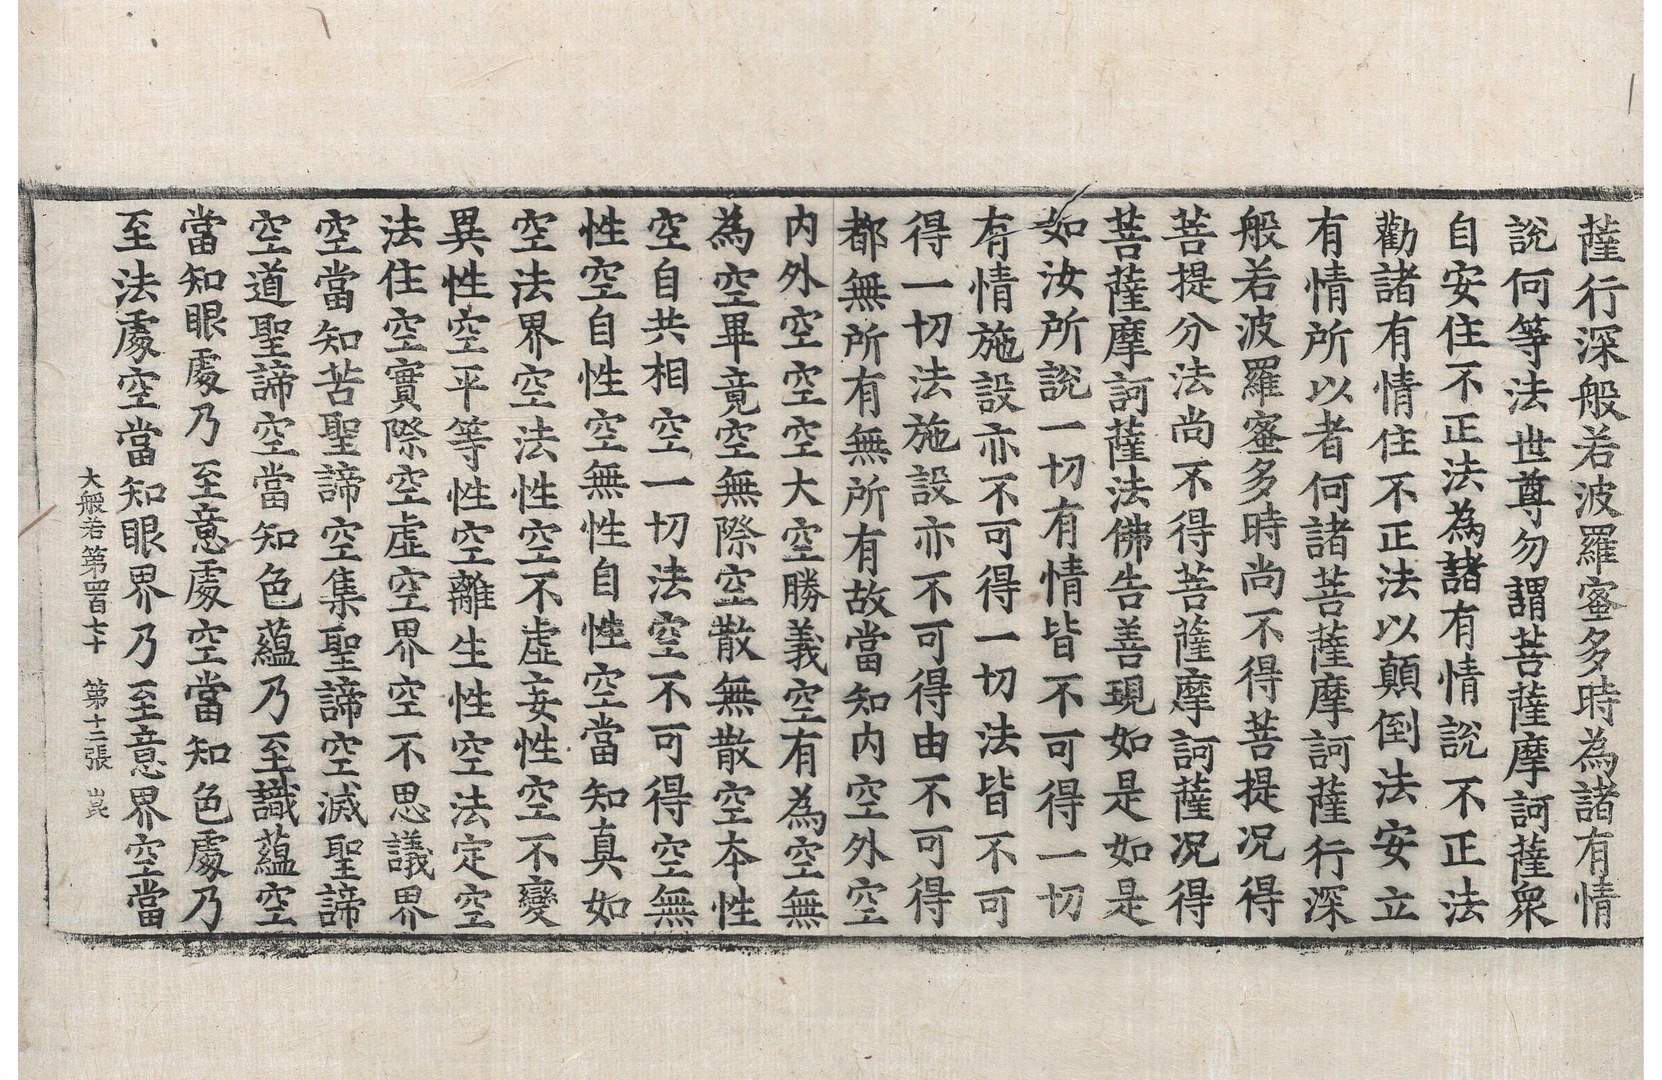 薩行深般若波羅蜜多時為諸有情
說何等法世尊勿謂菩薩摩訶薩衆
自安住不正法為諸有情說不正法
勸諸有情住不正法以顛倒法安立
有情所以者何諸菩薩摩訶薩行深
般若波羅蜜多時尚不得菩提况得
菩提分法尚不得菩薩摩訶薩况得
菩薩摩訶薩法佛告善現如是如是
如汝所說一切有情皆不可得一切
有情施設亦不可得一切法皆不可
得一切法施設亦不可得由不可得
都無所有無所有故當知内空外空
内外空空空大空勝義空有為空無
為空畢竟空無際空散無散空本性
空自共相空一切法空不可得空無
性空自性空無性自性空當知真如
空法界空法性空不虛妄性空不變
異性空平等性空離生性空法定空
法住空實際空虛空界空不思議界
空當知苦聖諦空集聖諦空滅聖諦
空道聖諦空當知色蘊乃至識蘊空
當知眼處乃至意處空當知色處乃
至法處空當知眼界乃至意界空當
大般若第四百七十 第十二張 崑